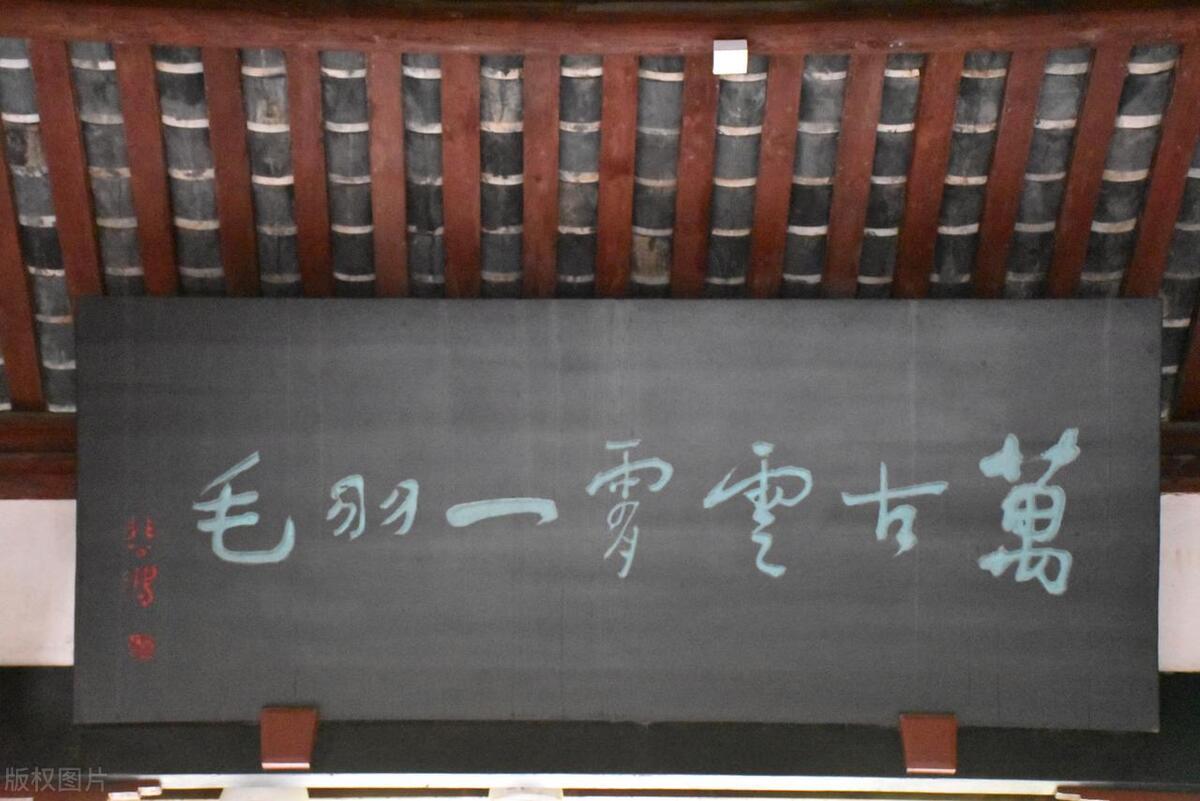 萬古雲霄一羽毛
悲鴻
版权图片